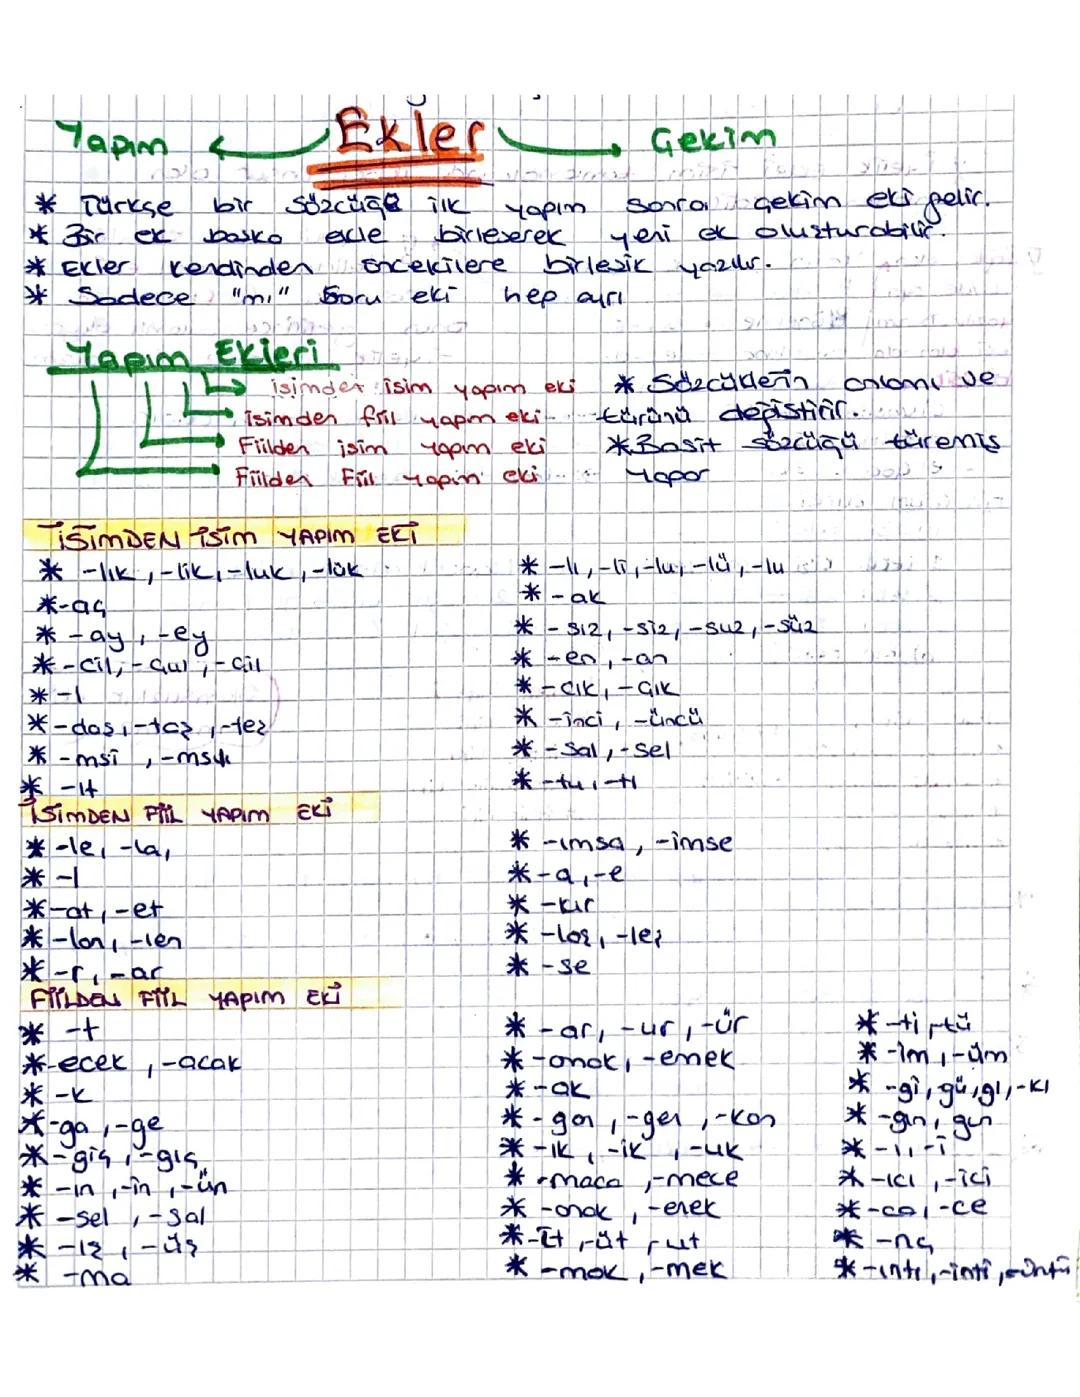 Yapım ← Ekler → Çekim
* Türkçe bir sözcüğe ilk yapım sonra çekim eki gelir.
* Bir ek başka ekle birleşerek yeni ek oluşturabilir.
* Ekler kendinden öncekilere birleşik yazılır.
* Sadece "mı" soru eki hep ayrı
Yapım Ekleri
isimden isim yapım eki
isimden fiil yapım eki
Fiilden isim yapım eki
Fiilden Fiil yapım eki
* Sözcüklerin anlamı ve
türünü değiştirir.
* Basit sözcüğü türemiş
yapar
İSİMDEN İSİM YAPIM EKİ
* -lık, -lik, -luk, -lük
* -aç
* -ay, -ey
* -cil, -çul, -çil
* -l
* -daş, -taş, -teş
* -msi, -msı
* -ıt
* -lı, -li, -lu, -lü, -lu
* -ak
* -sız, -siz, -suz, -süz
* -en, -an
* -cık, -çık
* -inci, -üncü
* -sal, -sel
* -tu, -tı
İSİMDEN FİİL YAPIM EKİ
* -le, -la,
* -l
* -at, -et
* -lan, -len
* -r, -ar
* -ımsa, -imse
* -a, -e
* -kır
* -laş, -leş
* -se
FİİLDEN FİİL YAPIM EKİ
* -t
* -ecek, -acak
* -k
* -ga, -ge
* -giç, -gıç
* -ın, -in, -ün
* -sel, -sal
* -ış, -üş
* -ma
* -ar, -ur, -ür
* -anak, -enek
* -ak
* -gan, -gen, -kan
* -ık, -ik, -uk
* -maca, -mece
* -anak, -enek
* -it, -üt, -ut
* -mak, -mek
* -ti, -tü
* -im, -üm
* -gi, gü, gı, -kı
* -gın, gun
* -ı, -i
* -ıcı, -ici
* -ca, -ce
* -nç
* -ıntı, -inti, -üntü